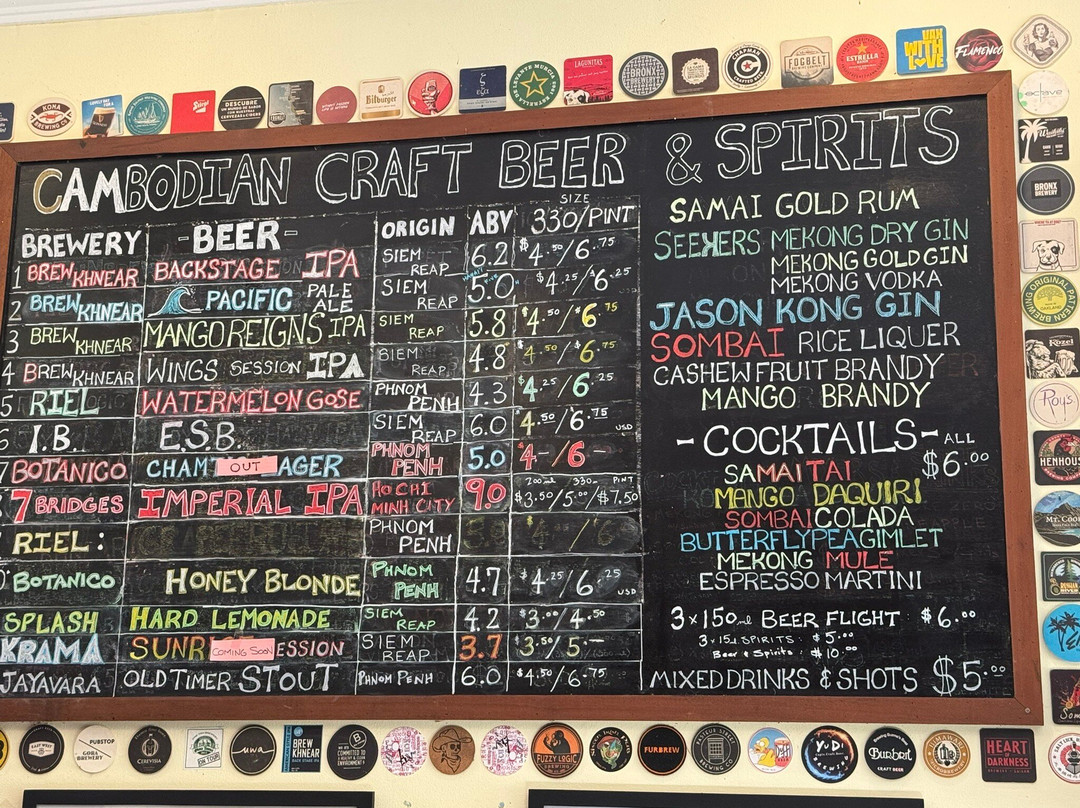 KONA
BREWING CO.
DESCUBRE
Bitburger
LAGUNITAS
BRONX
CHAPMAN
CRAFTED BEER
FOGBELT
ESTRELLA
VAX
WITH
LOVE
FLAMENCO
CAMBODIAN CRAFT BEER & SPIRITS
BREWERY -BEER- ORIGIN ABV SIZE 330/PINT
1 BREW KHNEAR BACKSTAGE IPA SIEM REAP 6.2 $4.50/6.75
2 BREW KHNEAR PACIFIC PALE ALE SIEM REAP 5.0 $4.25/$6.25
3 BREW KHNEAR MANGO REIGNS IPA SIEM REAP 5.8 $4.50/$6.75
4 BREW KHNEAR WINGS SESSION IPA SIEM REAP 4.8 $4.50/$6.75
5 RIEL WATERMELON GOSE PHNOM PENH 4.3 $4.25/6.25
6 I.B. E.S.B. SIEM REAP 6.0 $4.50/6.75 USD
7 BOTANICO CHAM OUT AGER PHNOM PENH 5.0 $4-/6-
7 BRIDGES IMPERIAL IPA HO CHI MINH CITY 9.0 200ml 330ml PINT $3.50/5.00/$7.50
RIEL: PHNOM PENH
BOTANICO HONEY BLONDE PHNOM PENH 4.7 $4.25/6.25 USD
SPLASH HARD LEMONADE SIEM REAP 4.2 $3.00/4.50
KRAMA SUNR COMING SOON ESSION SIEM REAP 3.7 $3.50/5.-
JAYAVARA OLD TIMER STOUT PHNOM PENH 6.0 $4.50/6.75
SAMAI GOLD RUM
SEEKERS MEKONG DRY GIN
MEKONG GOLD GIN
MEKONG VODKA
JASON KONG GIN
SOMBAI RICE LIQUER
CASHEW FRUIT BRANDY
MANGO BRANDY
-COCKTAILS- ALL $6.00
SAMAI TAI
MANGO DAQUIRI
SOMBAI COLADA
BUTTERFLYPEA GIMLET
MEKONG MULE
ESPRESSO MARTINI
3x150ml BEER FLIGHT: $6.00
3x15ml SPIRITS: $5.00
Beer & Spirits: $10.00
MIXED DRINKS & SHOTS $5.00
BRONX
BREWERY
ORIGINAL PATTERN BREWING
Kozel
Roy's
HENHOUSE
MT. COOK
RUSSIAN
RIVER
PUBSTOP
GORA
BREWERY
CEREVISIA
uwa
BREW
KHNEAR
COMMITTED
FUZZY LOGIC
FURBREW
PASTEUR STREET
BREWING CO
YUDI
Burbrit
CRAFT BEER
HEART
OF
DARKNESS